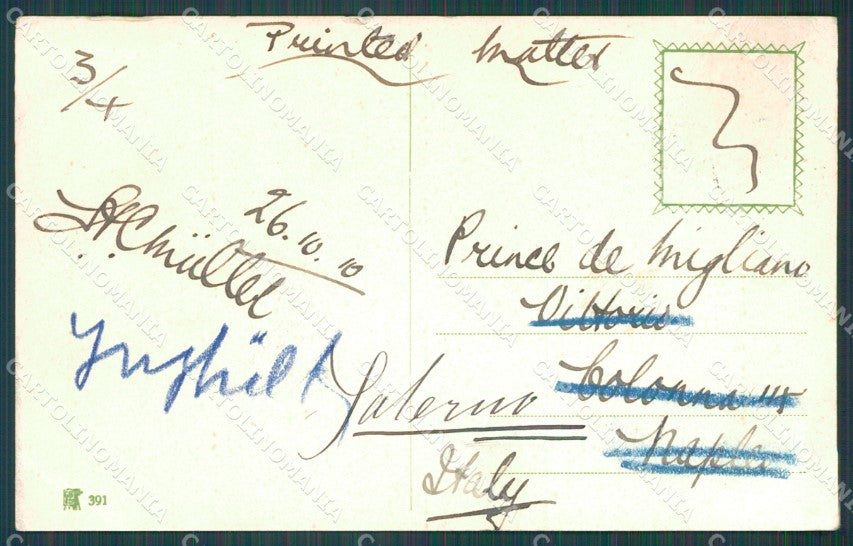 Printed Matter
3/4
26.10.10
Müller
Prince de Migliano
Vittoria
Colonna
Salerno
Italy
391
CARTOLINOMANIA